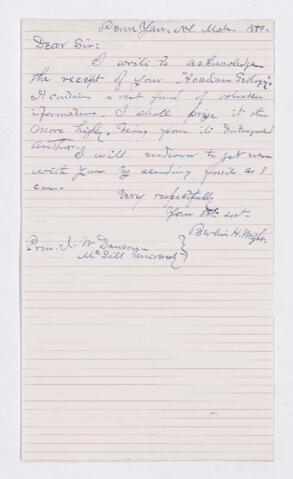 Penn Yan, N.Y. Mch. 1880.
Dear Sir:
I write to acknowledge
the receipt of your "Acadian Geology".
It contains a vast fund of valuable
information. I shall prize it the
more highly, being from its distinguished
author.
I will endeavor to get even
with you by sending fossils as I
can.
Very respectfully
Your obt. svt.
Berlin H. Wright
Prin. J. W. Dawson
McGill University